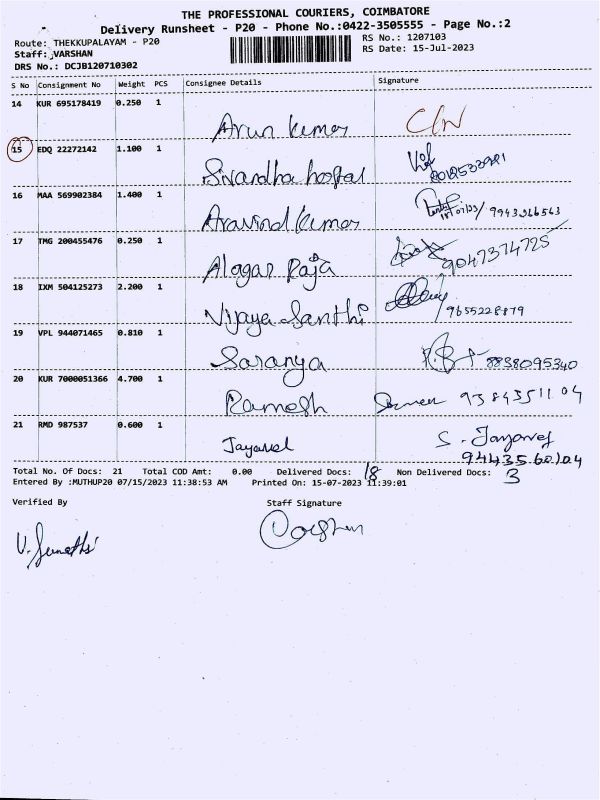 THE PROFESSIONAL COURIERS, COIMBATORE
Delivery Runsheet - P20 - Phone No.:0422-3505555 - Page No.:2
Route: THEKKUPALAYAM - P20
RS No.: 1207103
Staff: VARSHAN
RS Date: 15-Jul-2023
DRS No.: DCJB120710302
S No Consignment No Weight PCS Consignee Details Signature
14 KUR 695178419 0.250 1
Arun kumar
15 EDQ 22272142 1.100 1
Sivandha hospital
16 MAA 569902384 1.400 1
Aravind kumar / 9943266563
17 TMG 200455476 0.250 1
Alagar Raja 9047374725
18 IXM 504125273 2.200 1
Vijaya Santhi / 9655228879
19 VPL 944071465 0.810 1
Saranya 8838095340
20 KUR 7000051366 4.700 1
Ramesh 9384351104
21 RMD 987537 0.600 1
Jayavel S. Jayavel
94435.60104
Total No. Of Docs: 21 Total COD Amt: 0.00 Delivered Docs: 18 Non Delivered Docs: 3
Entered By :MUTHUP20 07/15/2023 11:38:53 AM Printed On: 15-07-2023 11:39:01
Verified By Staff Signature